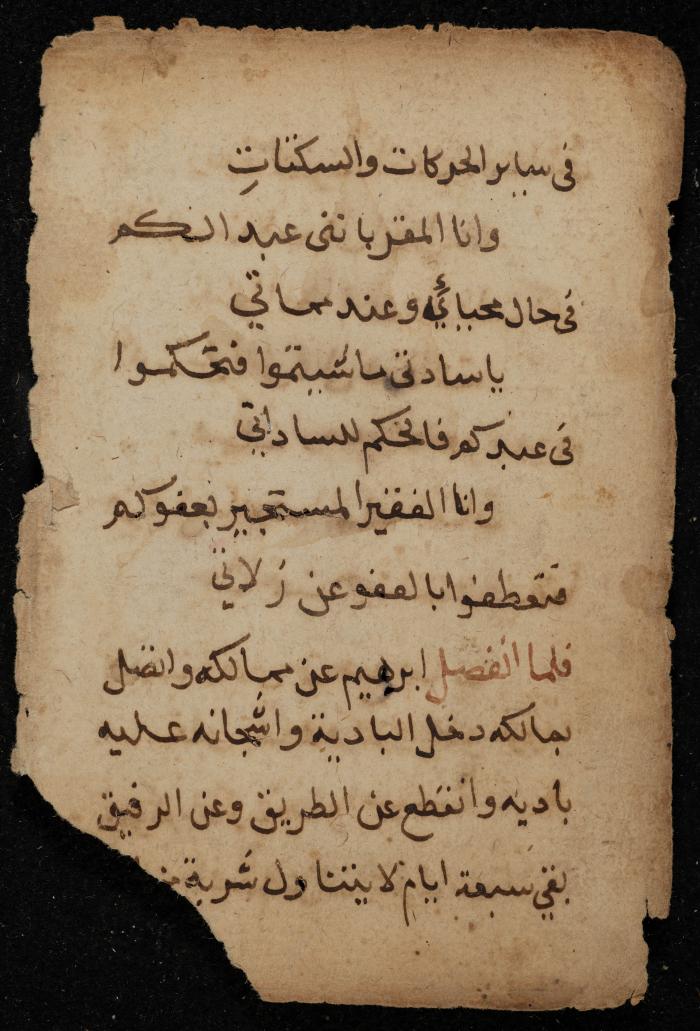 في ساير الحركات والسكنات
وانا المقر بانني عبد الكم
في حال محيائي وعند مماتي
ياسادتي ما شيتموا فتحكموا
في عبدكم فالحكم للساداتي
وانا الفقير المستجير بعفوكم
فتعطفوا بالعفو عن زلاتي
فلما انفصل ابرهيم عن ممالكه واتصل
بمالكه دخل البادية واشجانه عليه
باديه وانقطع عن الطريق وعن الرفيق
بقي سبعة ايام لا يتناول شربة